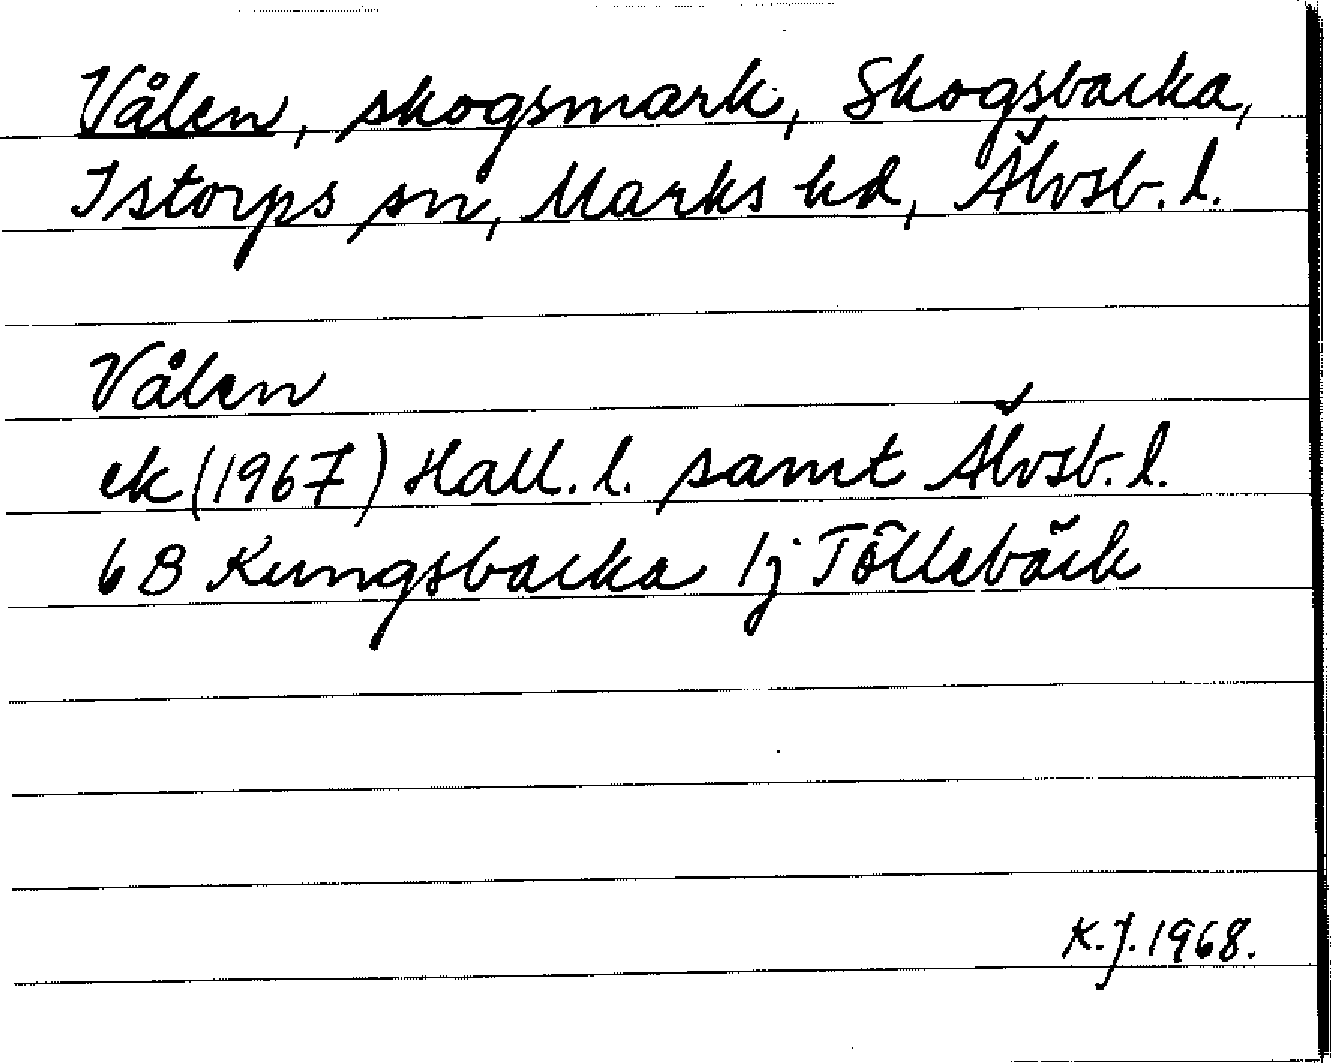 Vålen, skogsmark, Skogsbacka,
Istorps sn, Marks hd, Älvsb. l.
Vålen
ek (1967) Hall. l. samt Älvsb. l.
6B Kungsbacka 1j Töllebäck
K.J. 1968.